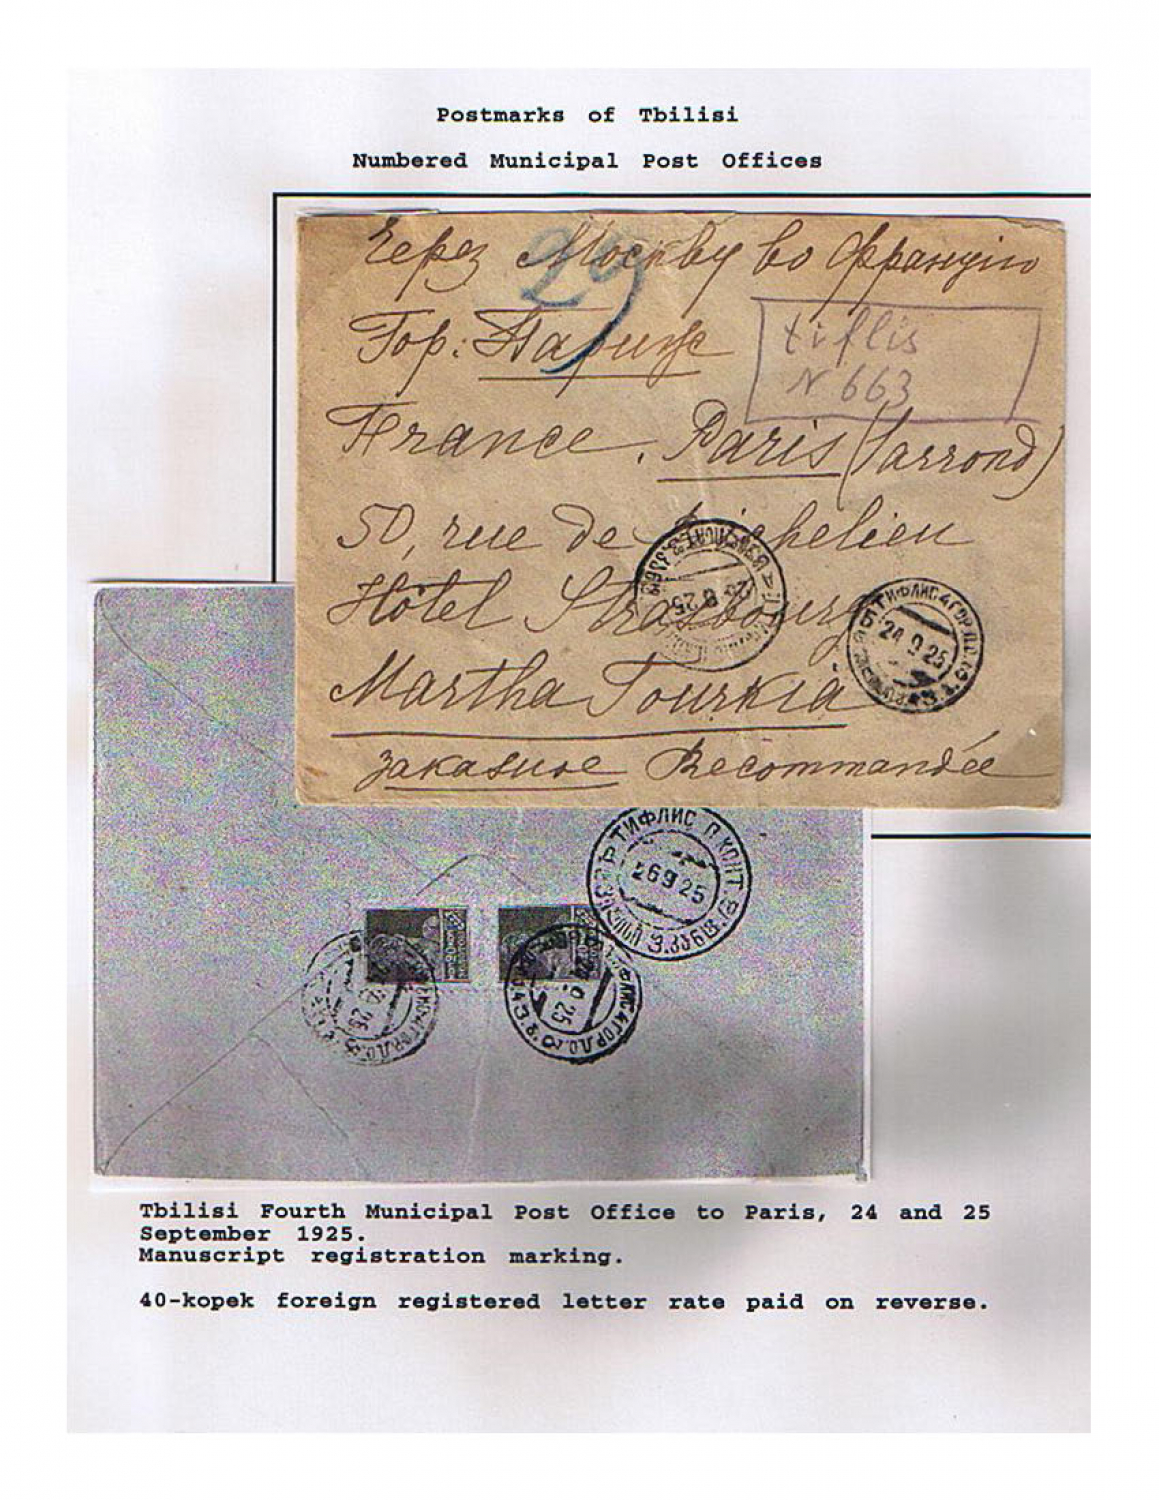 Postmarks of Tbilisi
Numbered Municipal Post Offices
Через Москву во Францiю
29
Гор: Париж
tiflis
N 663
France. Paris (I arrond)
50, rue de Richelieu
Hôtel Strasbourg
Martha Tourkia
заказное Recommandée
ТИФЛИС 4 ГОР.П.О.
24 9 25
ТИФЛИС П.КОНТ.
26 9 25
Tbilisi Fourth Municipal Post Office to Paris, 24 and 25
September 1925.
Manuscript registration marking.
40-kopek foreign registered letter rate paid on reverse.